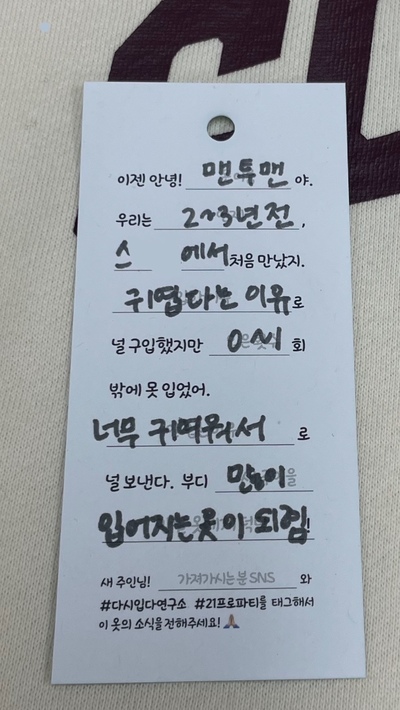 이젠 안녕! 맨투맨 야.
우리는 2~3년 전,
스 에서 처음 만났지.
귀엽다는 이유로
널 구입했지만 회
밖에 못 입었어.
너무 귀여워서 로
널 보낸다. 부디 많이
입어지는 옷이 되렴!
새 주인님! 가져가시는 분 SNS 와
#다시입다연구소 #21프로파티를 태그해서
이 옷의 소식을 전해주세요! 🙏🏼